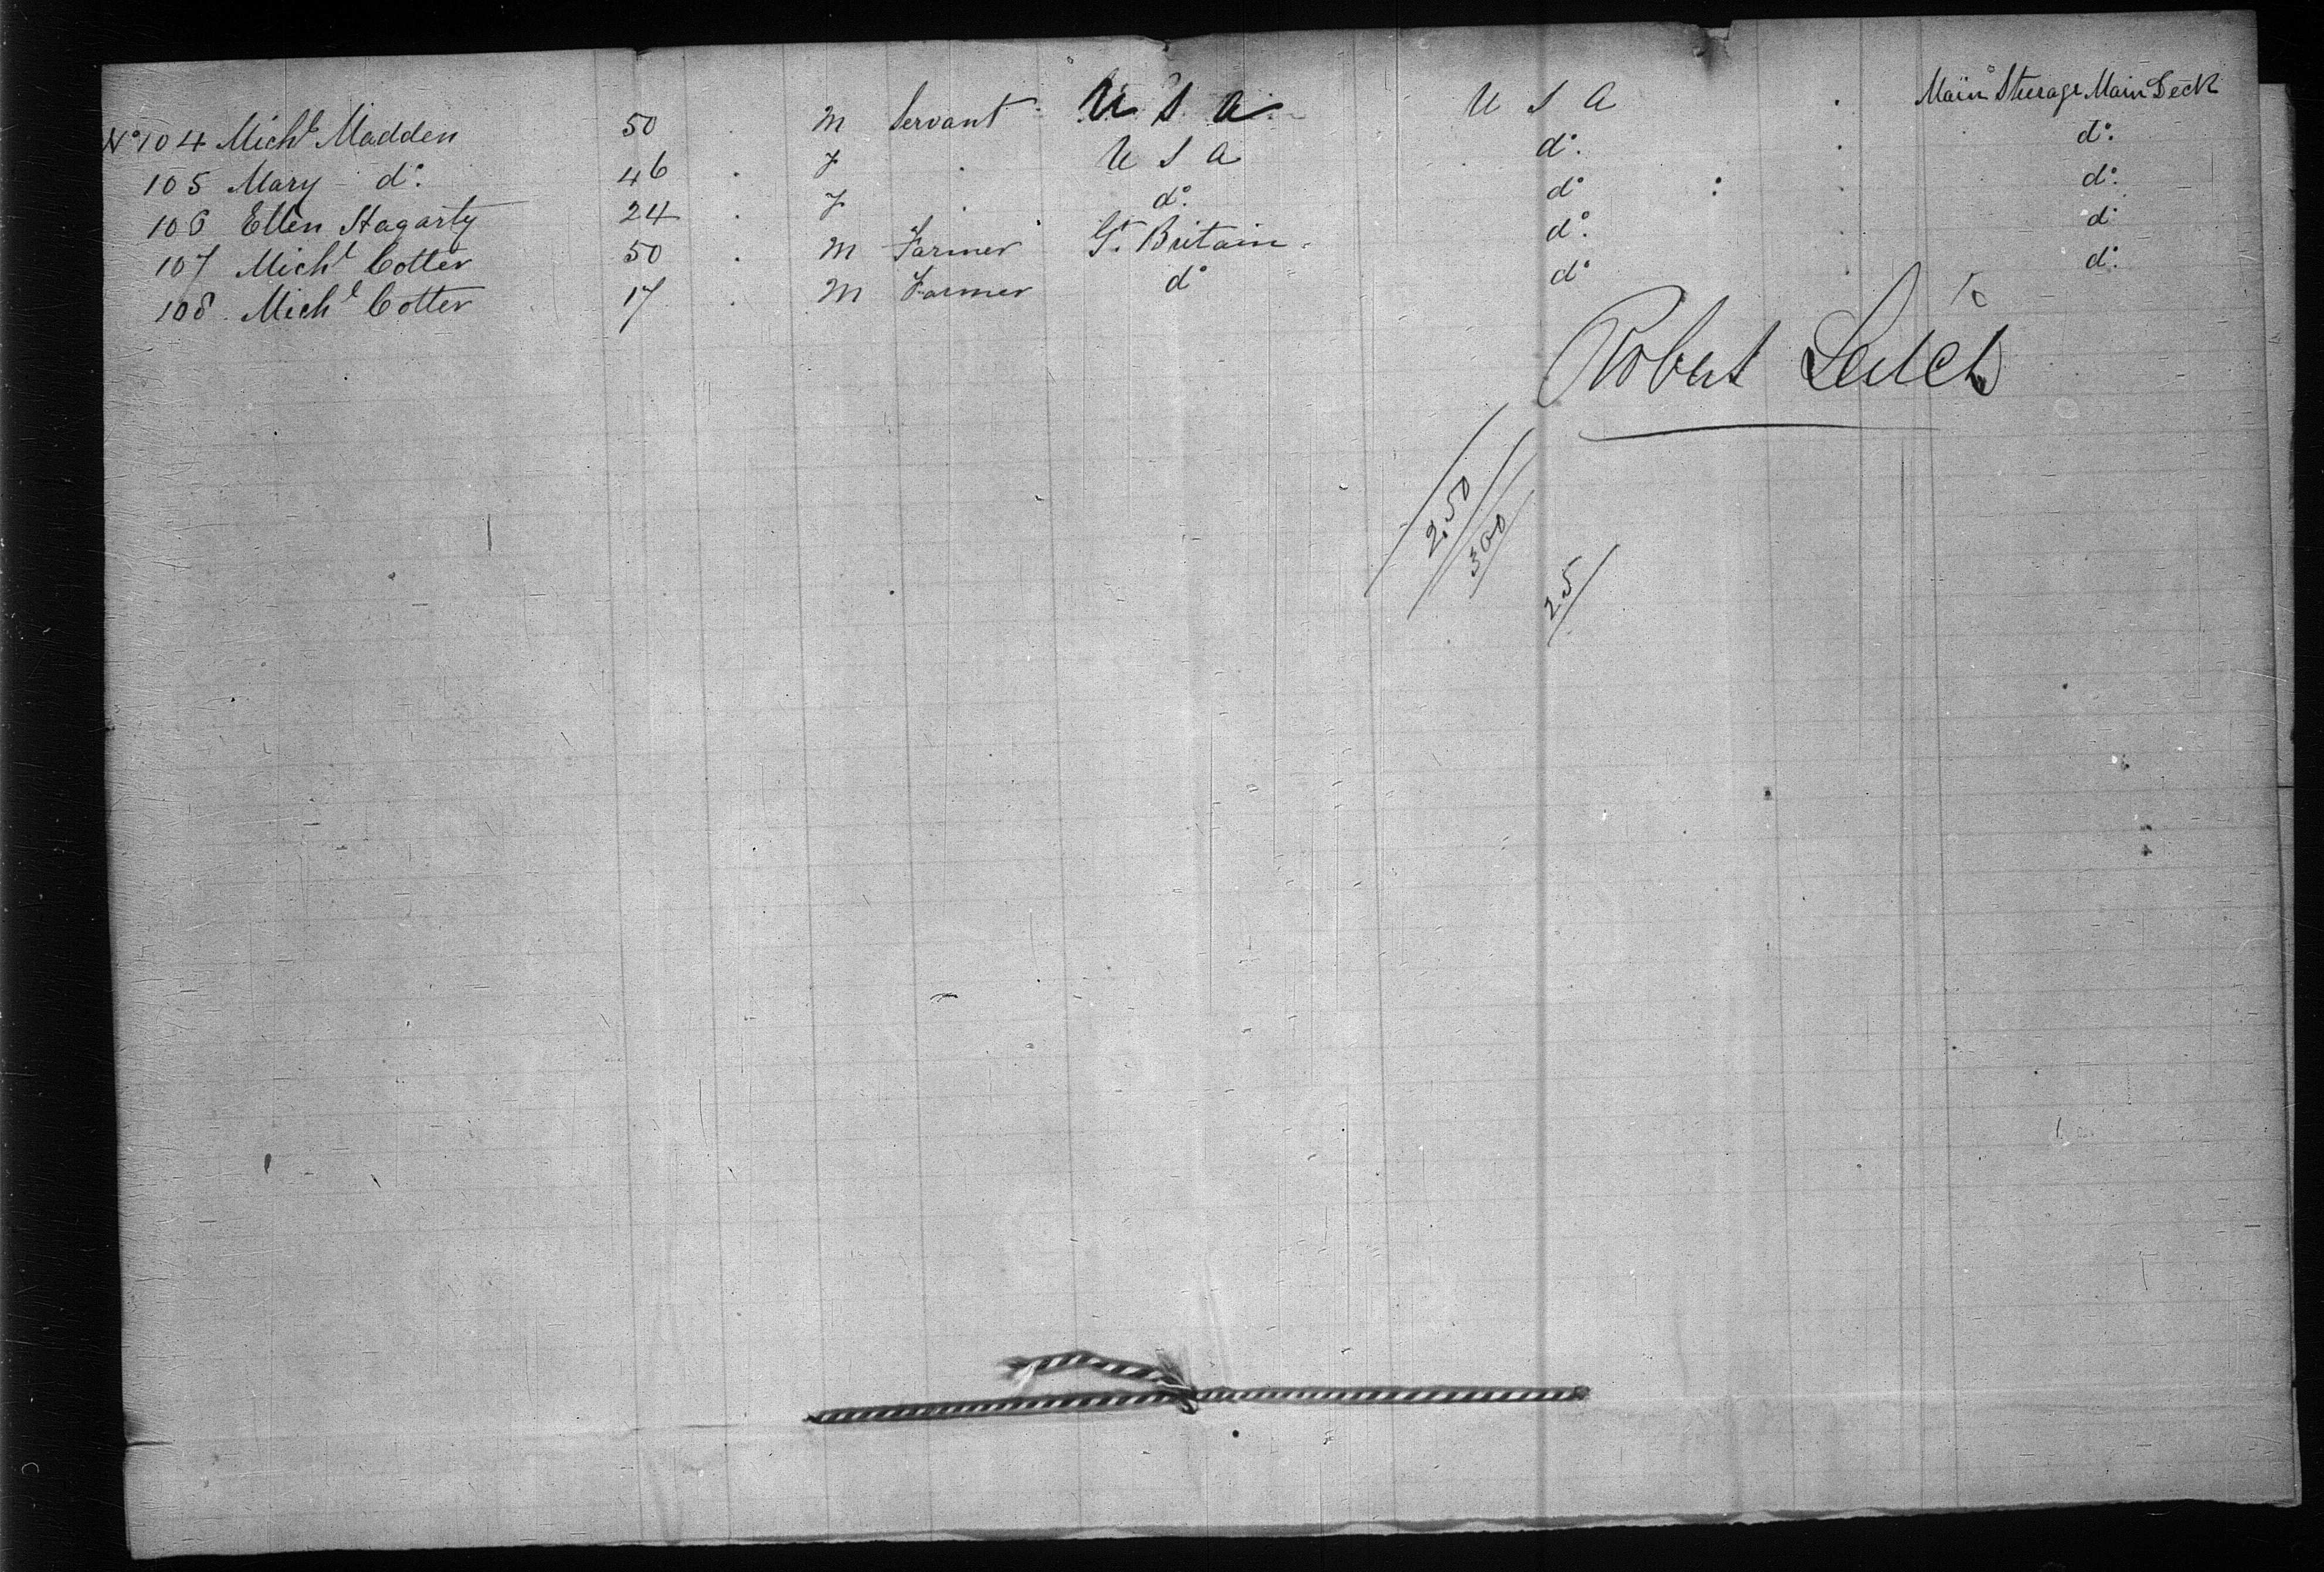 No 104 Michl Madden 50 M Servant U S A U S A Main Steerage Main Deck
105 Mary do. 46 F U S A do. do.
106 Ellen Hagarty 24 F do. do do.
107 Michl Cotter 50 M Farmer Gt. Britain do. do
108 Michl Cotter 17 M Farmer do do do.
Robert Leitch
2.50
300
25